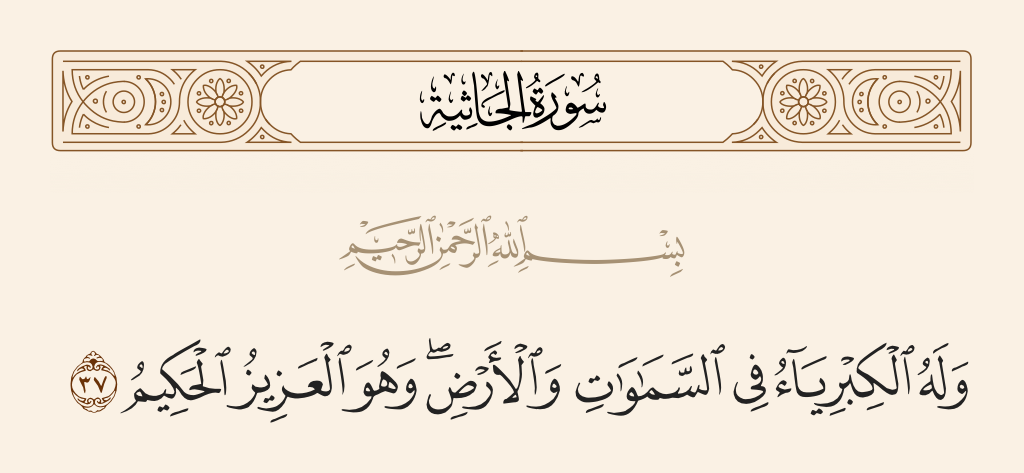 سُورَةُ الجَاثِيَةِ
بِسْمِ ٱللَّهِ ٱلرَّحْمَٰنِ ٱلرَّحِيمِ
وَلَهُ ٱلْكِبْرِيَآءُ فِى ٱلسَّمَٰوَٰتِ وَٱلْأَرْضِ ۖ وَهُوَ ٱلْعَزِيزُ ٱلْحَكِيمُ ٣٧